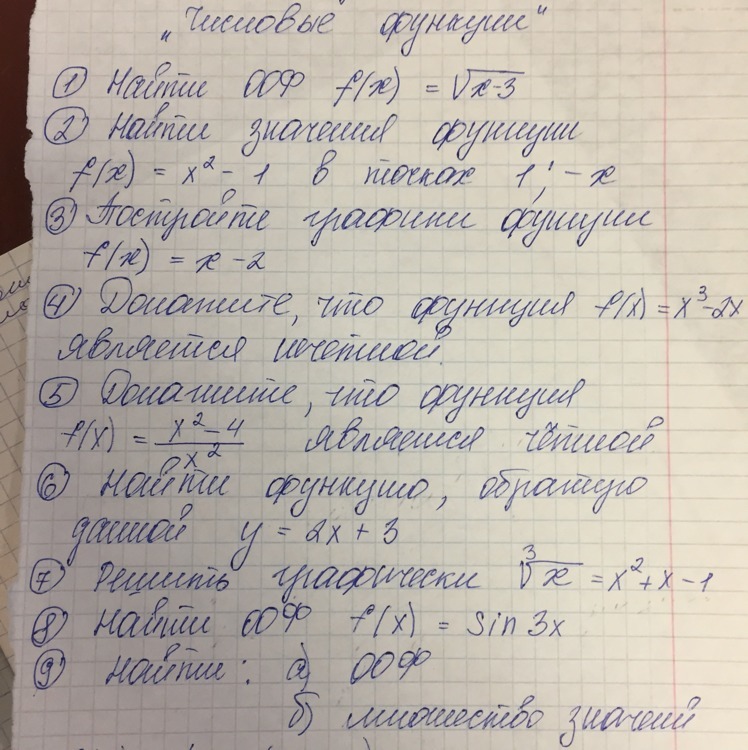 "Числовые функции"
① Найти ООФ f(x) = √x-3
② Найти значения функции
f(x) = x² - 1 в точках 1; -x
③ Постройте графики функции
f(x) = x - 2
④ Докажите, что функция f(x) = x³-2x
является нечётной.
⑤ Докажите, что функция
f(x) = x²-4 / x² является чётной
⑥ Найти функцию, обратную
данной y = 2x + 3
⑦ Решить графически ³√x = x²+x-1
⑧ Найти ООФ f(x) = sin 3x
⑨ Найти: а) ООФ
б) множество значений